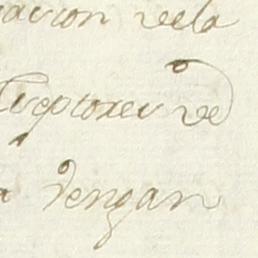 acion dela
ceptores de
a vengan